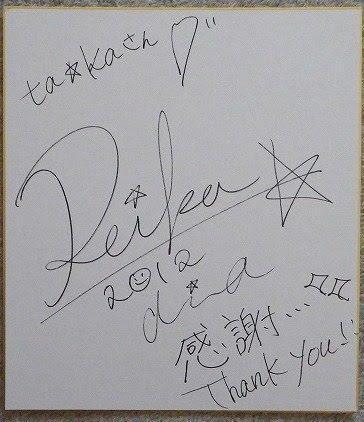 ta☆kaさん♡
Reika☆
2012
dia
感謝…
Thank you!!